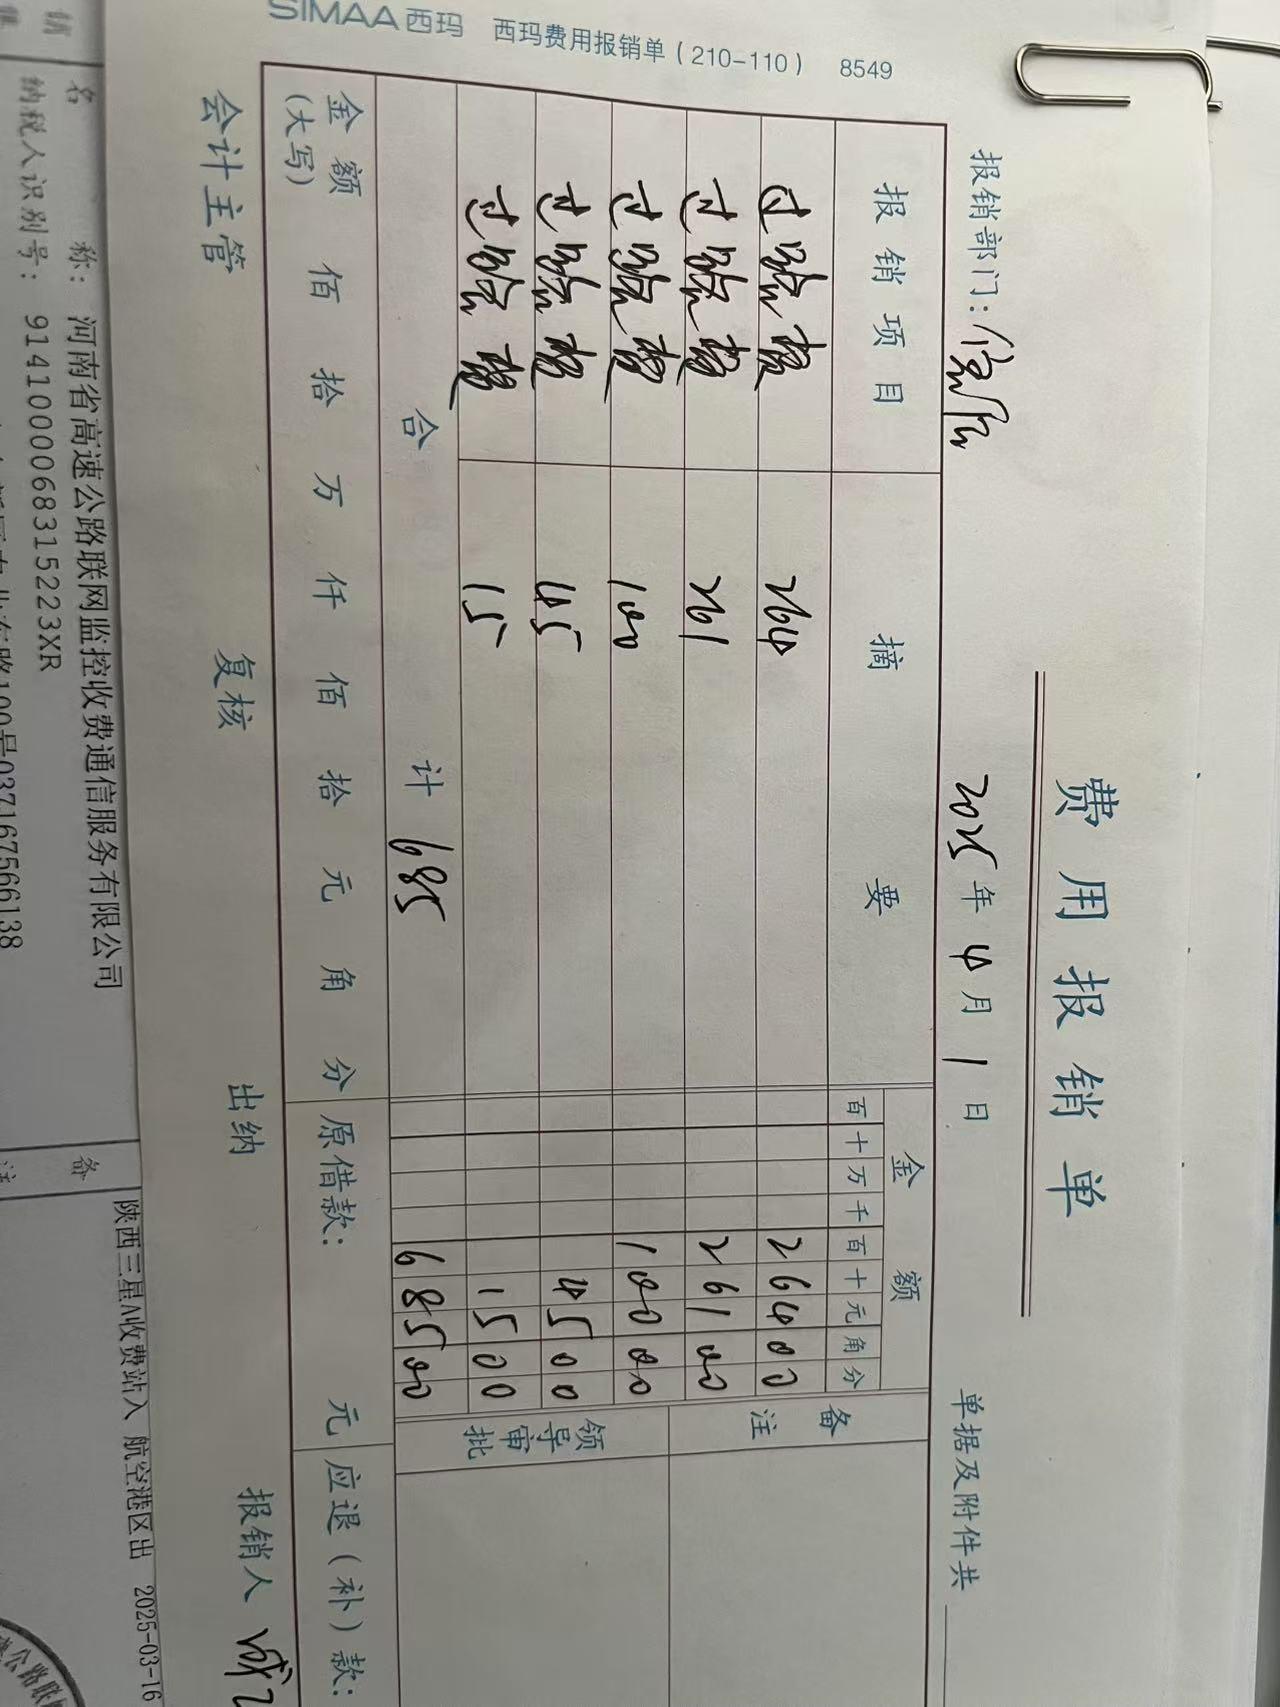 费用报销单
报销部门： 2025年4月1日 单据及附件共
报销项目 摘要 金额 备注
百十万千百十元角分
过路费 264 26400
过路费 261 26100
过路费 100 10000
过路费 45 4500
过路费 15 1500
领导审批
合计 685 68500
金额(大写) 佰拾万仟佰拾元角分 原借款： 元 应退(补)款：
会计主管 复核 出纳 报销人
SIMAA西玛 西玛费用报销单(210-110) 8549
名称：河南省高速公路联网监控收费通信服务有限公司
纳税人识别号：
备注
陕西三星A收费站入 航空港区出 2025-03-16